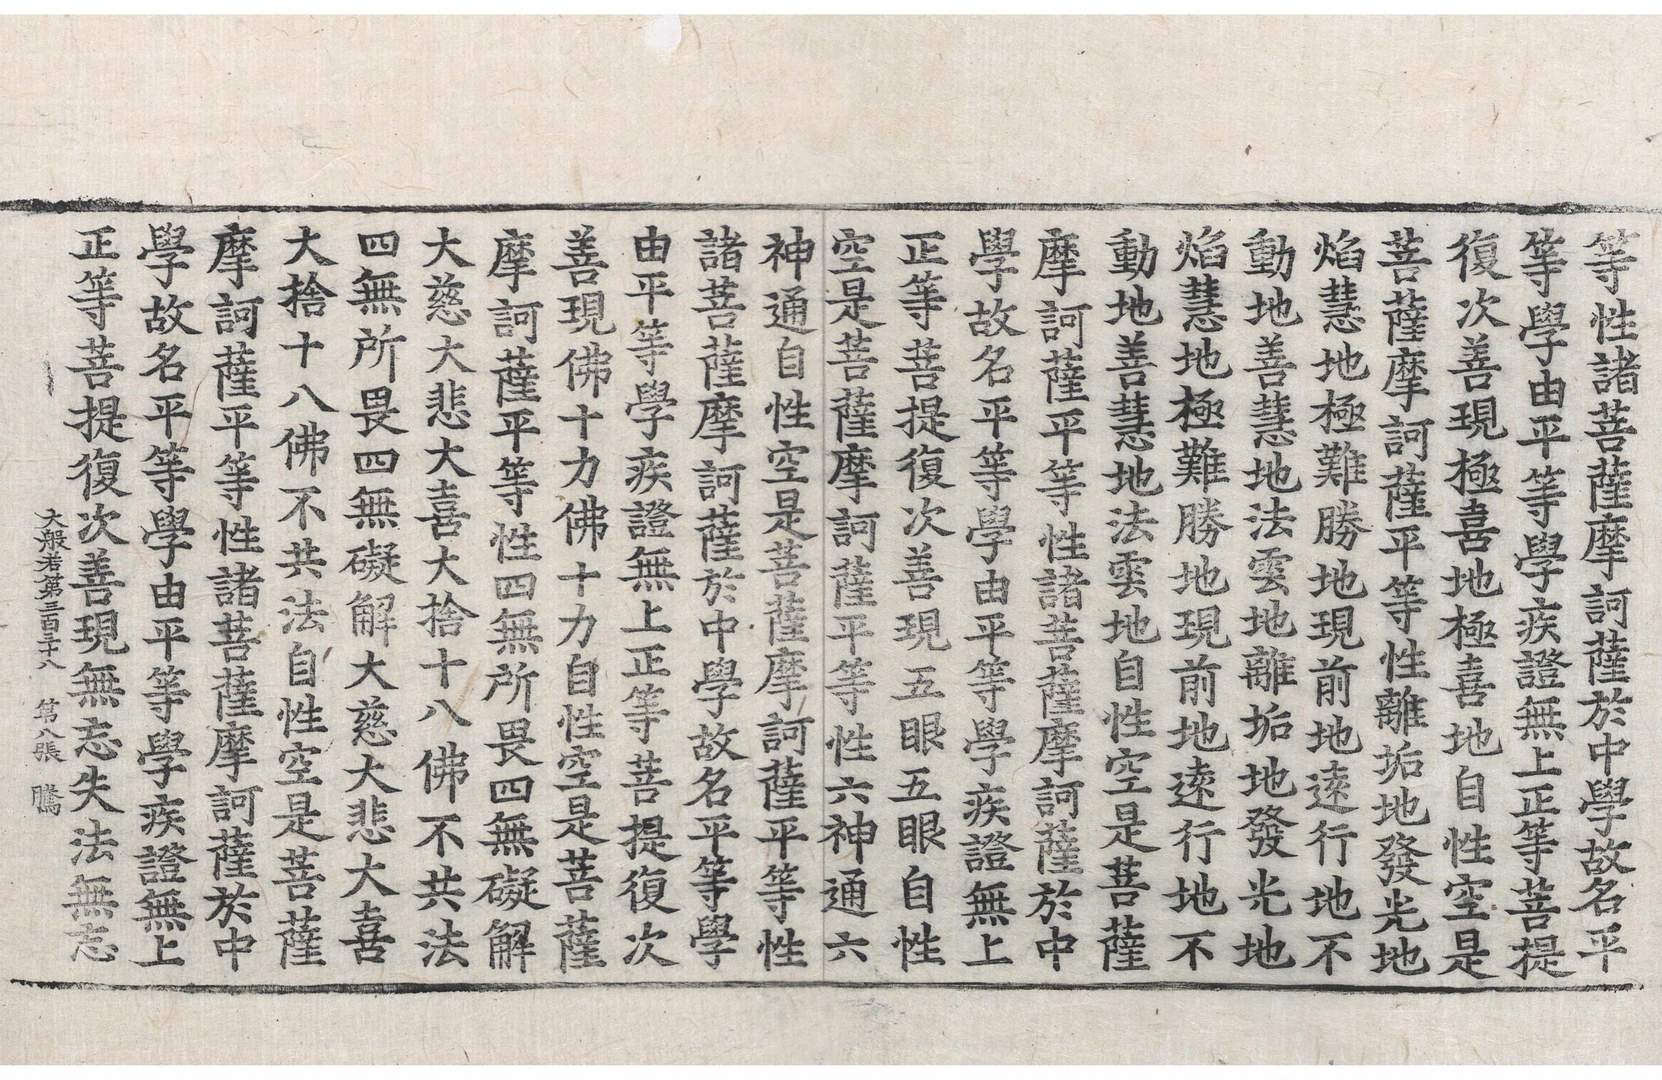 等性諸菩薩摩訶薩於中學故名平
等學由平等學疾證無上正等菩提
復次善現極喜地極喜地自性空是
菩薩摩訶薩平等性離垢地發光地
焰慧地極難勝地現前地遠行地不
動地善慧地法雲地離垢地發光地
焰慧地極難勝地現前地遠行地不
動地善慧地法雲地自性空是菩薩
摩訶薩平等性諸菩薩摩訶薩於中
學故名平等學由平等學疾證無上
正等菩提復次善現五眼五眼自性
空是菩薩摩訶薩平等性六神通六
神通自性空是菩薩摩訶薩平等性
諸菩薩摩訶薩於中學故名平等學
由平等學疾證無上正等菩提復次
善現佛十力佛十力自性空是菩薩
摩訶薩平等性四無所畏四無礙解
大慈大悲大喜大捨十八佛不共法
四無所畏四無礙解大慈大悲大喜
大捨十八佛不共法自性空是菩薩
摩訶薩平等性諸菩薩摩訶薩於中
學故名平等學由平等學疾證無上
正等菩提復次善現無忘失法無忘
大般若第三百三十八 第八張 騰